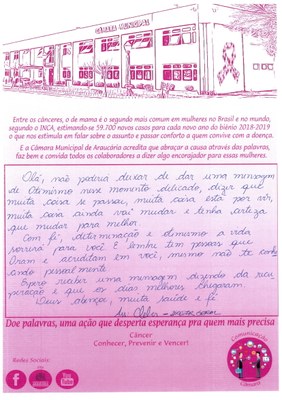 CÂMARA MUNICIPAL
Entre os cânceres, o de mama é o segundo mais comum em mulheres no Brasil e no mundo,
segundo o INCA, estimando-se 59.700 novos casos para cada novo ano do biênio 2018-2019
o que nos estimula em falar sobre o assunto e passar conforto a quem convive com a doença.
E a Câmara Municipal de Araucária acredita que abraçar a causa através das palavras,
faz bem e convida todos os colaboradores a dizer algo encorajador para essas mulheres.
Olá, não poderia deixar de dar uma mensagem
de Otimismo nesse momento delicado, dizer que
muita coisa se passou, muita coisa está por vir,
muita coisa ainda vai mudar e tenha certeza
que mudar para melhor
Com fé, determinação e otimismo a vida
sorrirá para você. E lembre tem pessoas que
Oram e acreditam em você, mesmo não te conhe
cendo pessoalmente
Espero receber uma mensagem dizendo da sua
e que os dias melhores chegaram.
Deus abençoe, muita saúde e fé
Doe palavras, uma ação que desperta esperança pra quem mais precisa
Câncer
Conhecer, Prevenir e Vencer!
Redes Sociais:
You
Tube
Comunicação
Câmara